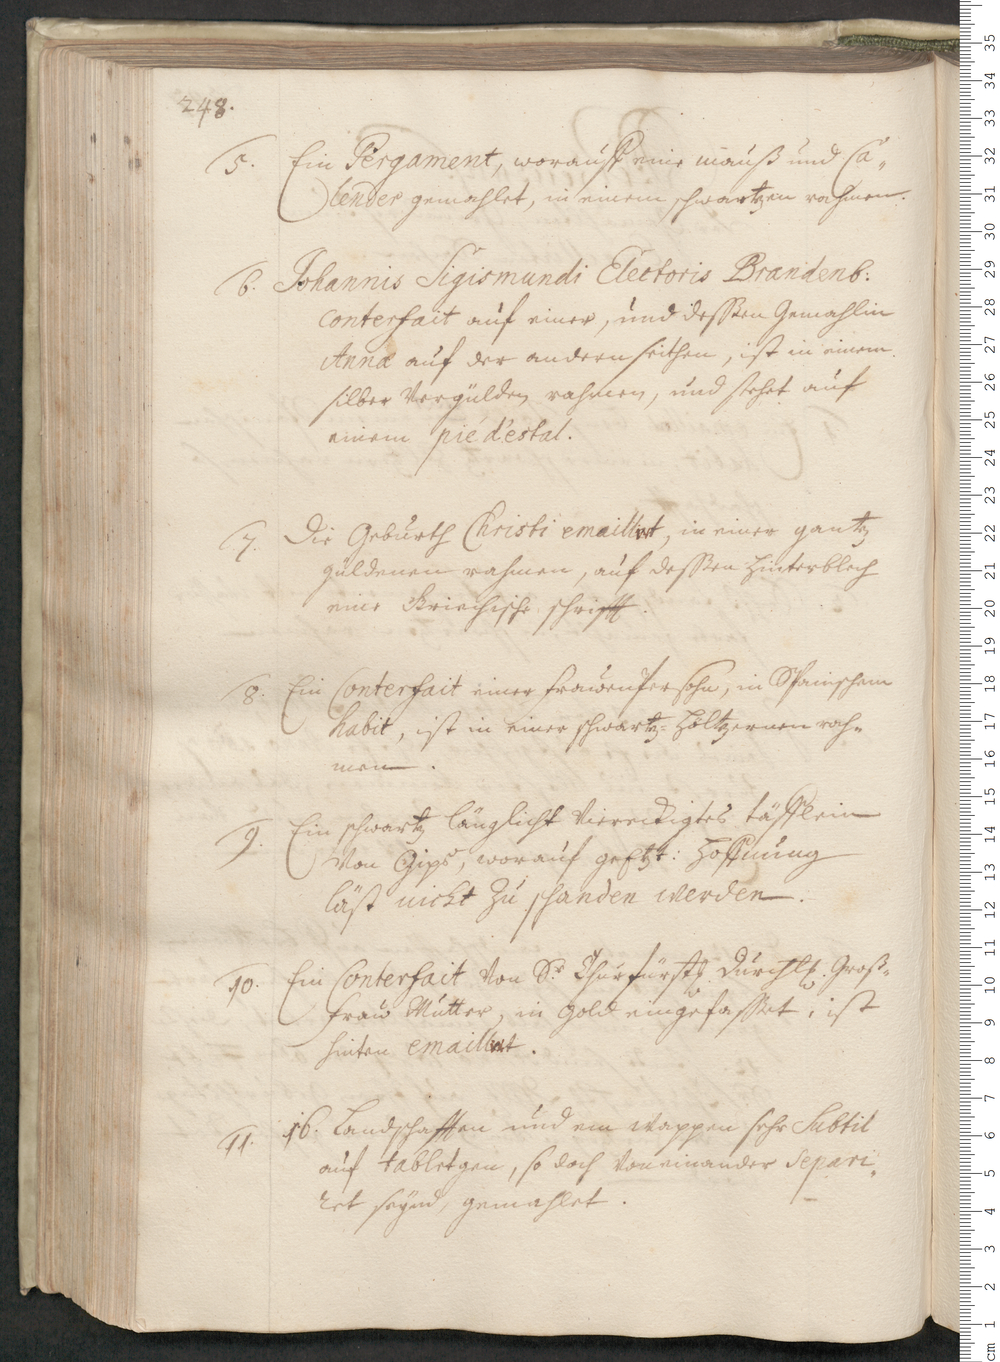 248.
5. Ein Pergament, worauff eine mauß und Ca„
lender gemahlet, in einem schwartzen rahmen.
6. Johannis Sigismundi Electoris Brandenb:
conterfait auf einer, und deßen Gemahlin
Anna auf der andern seithen, ist in einem
silber vergülden rahmen, und stehet auf
einem piédéstal.
7. Die Geburth Christi emaillirt, in einer gantz
guldenen rahmen, auf deßen hinterblech
eine Kriechische schrifft.
8. Ein Conterfait einer frauenPersohn, in Spanischem
habit, ist in einer schwartz=höltzernen rah=
men.
9. Ein schwartz länglicht Viereckigtes täfflein
von Gips, worauf geetzt: Hoffnung
läst nicht zu schanden werden.
10. Ein Conterfait von Sr. Churfürstl. Durchlt. Groß=
frau Mutter, in gold eingefaßet, ist
hinten emaillirt.
11. 16. Landschafften und ein wappen sehr Subtil
auf tabletgen, so doch von einander Separi„
ret seynd, gemahlet.
35
34
33
32
31
30
29
28
27
26
25
24
23
22
21
20
19
18
17
16
15
14
13
12
11
10
9
8
7
6
5
4
3
2
cm 1